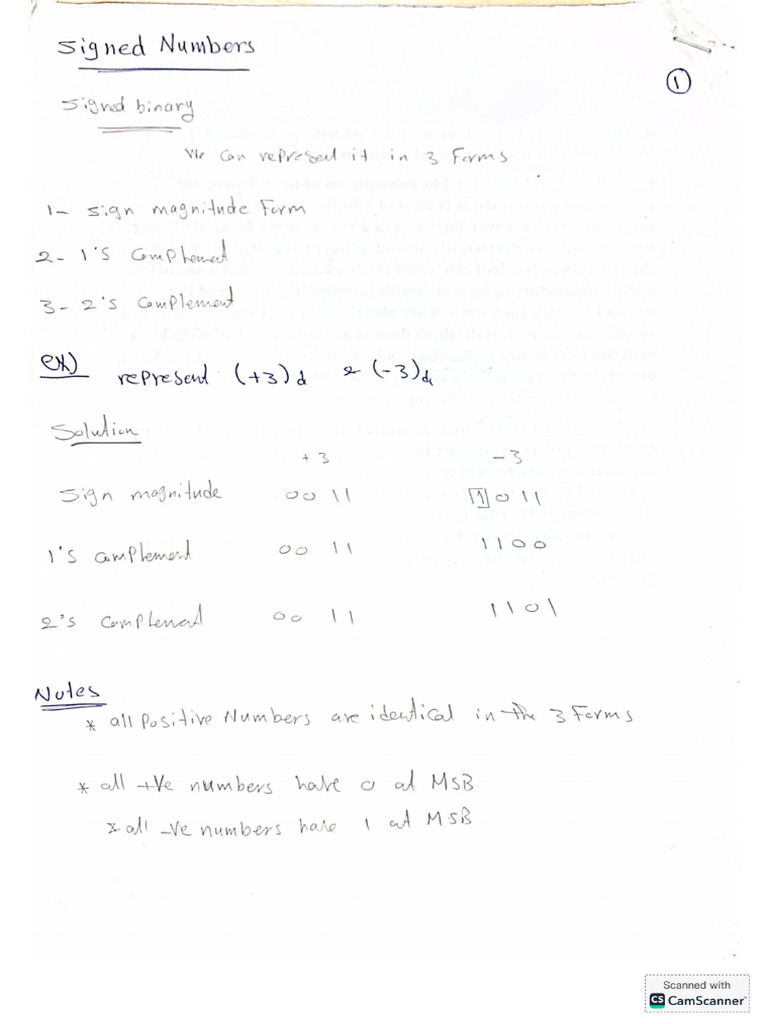 Signed Numbers
1
Signed binary
We Can represent it in 3 Forms
1- Sign magnitude Form
2- 1's Complement
3- 2's Complement
ex) represent (+3)d & (-3)d
Solution
+3 -3
Sign magnitude 0011 1011
1's complement 0011 1100
2's complement 0011 1101
Notes
* all Positive Numbers are identical in the 3 Forms
* all +Ve numbers have 0 at MSB
* all -Ve numbers have 1 at MSB
Scanned with
CS CamScanner